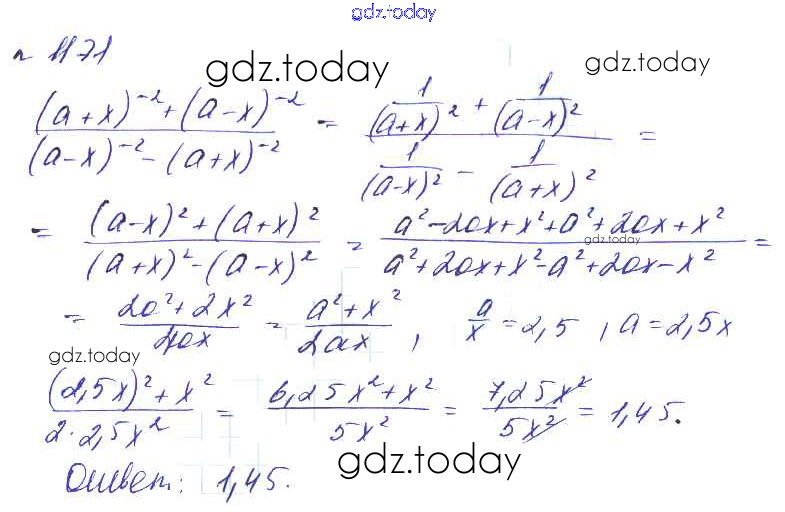 gdz.today
n 1171
gdz.today gdz.today
((a+x)^-2+(a-x)^-2)/((a-x)^-2-(a+x)^-2) = (1/(a+x)^2 + 1/(a-x)^2)/(1/(a-x)^2 - 1/(a+x)^2) =
= ((a-x)^2+(a+x)^2)/((a+x)^2-(a-x)^2) = (a^2-2ax+x^2+a^2+2ax+x^2)/(a^2+2ax+x^2-a^2+2ax-x^2) =
gdz.today
= (2a^2+2x^2)/(4ax) = (a^2+x^2)/(2ax), a/x = 2,5, a=2,5x
gdz.today
((2,5x)^2+x^2)/(2·2,5x^2) = (6,25x^2+x^2)/(5x^2) = (7,25x^2)/(5x^2) = 1,45.
Ответ: 1,45.
gdz.today